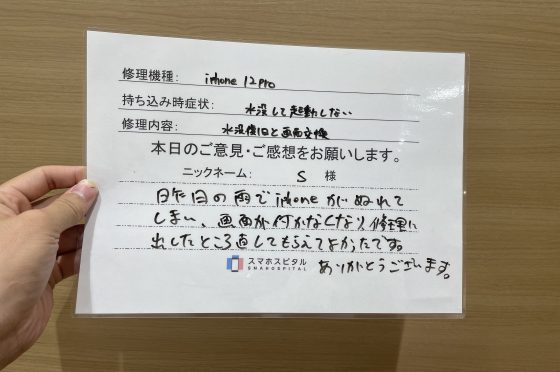 修理機種: iphone 12 pro
持ち込み時症状: 水没して起動しない
修理内容: 水没復旧と画面交換
本日のご意見・ご感想をお願いします。
ニックネーム: S 様
昨日の雨でiphoneがぬれて
しまい、画面が付かなくなり、修理に
出したところ直してもらえてよかったです。
スマホスピタル
SMAHOSPITAL
ありがとうございます。